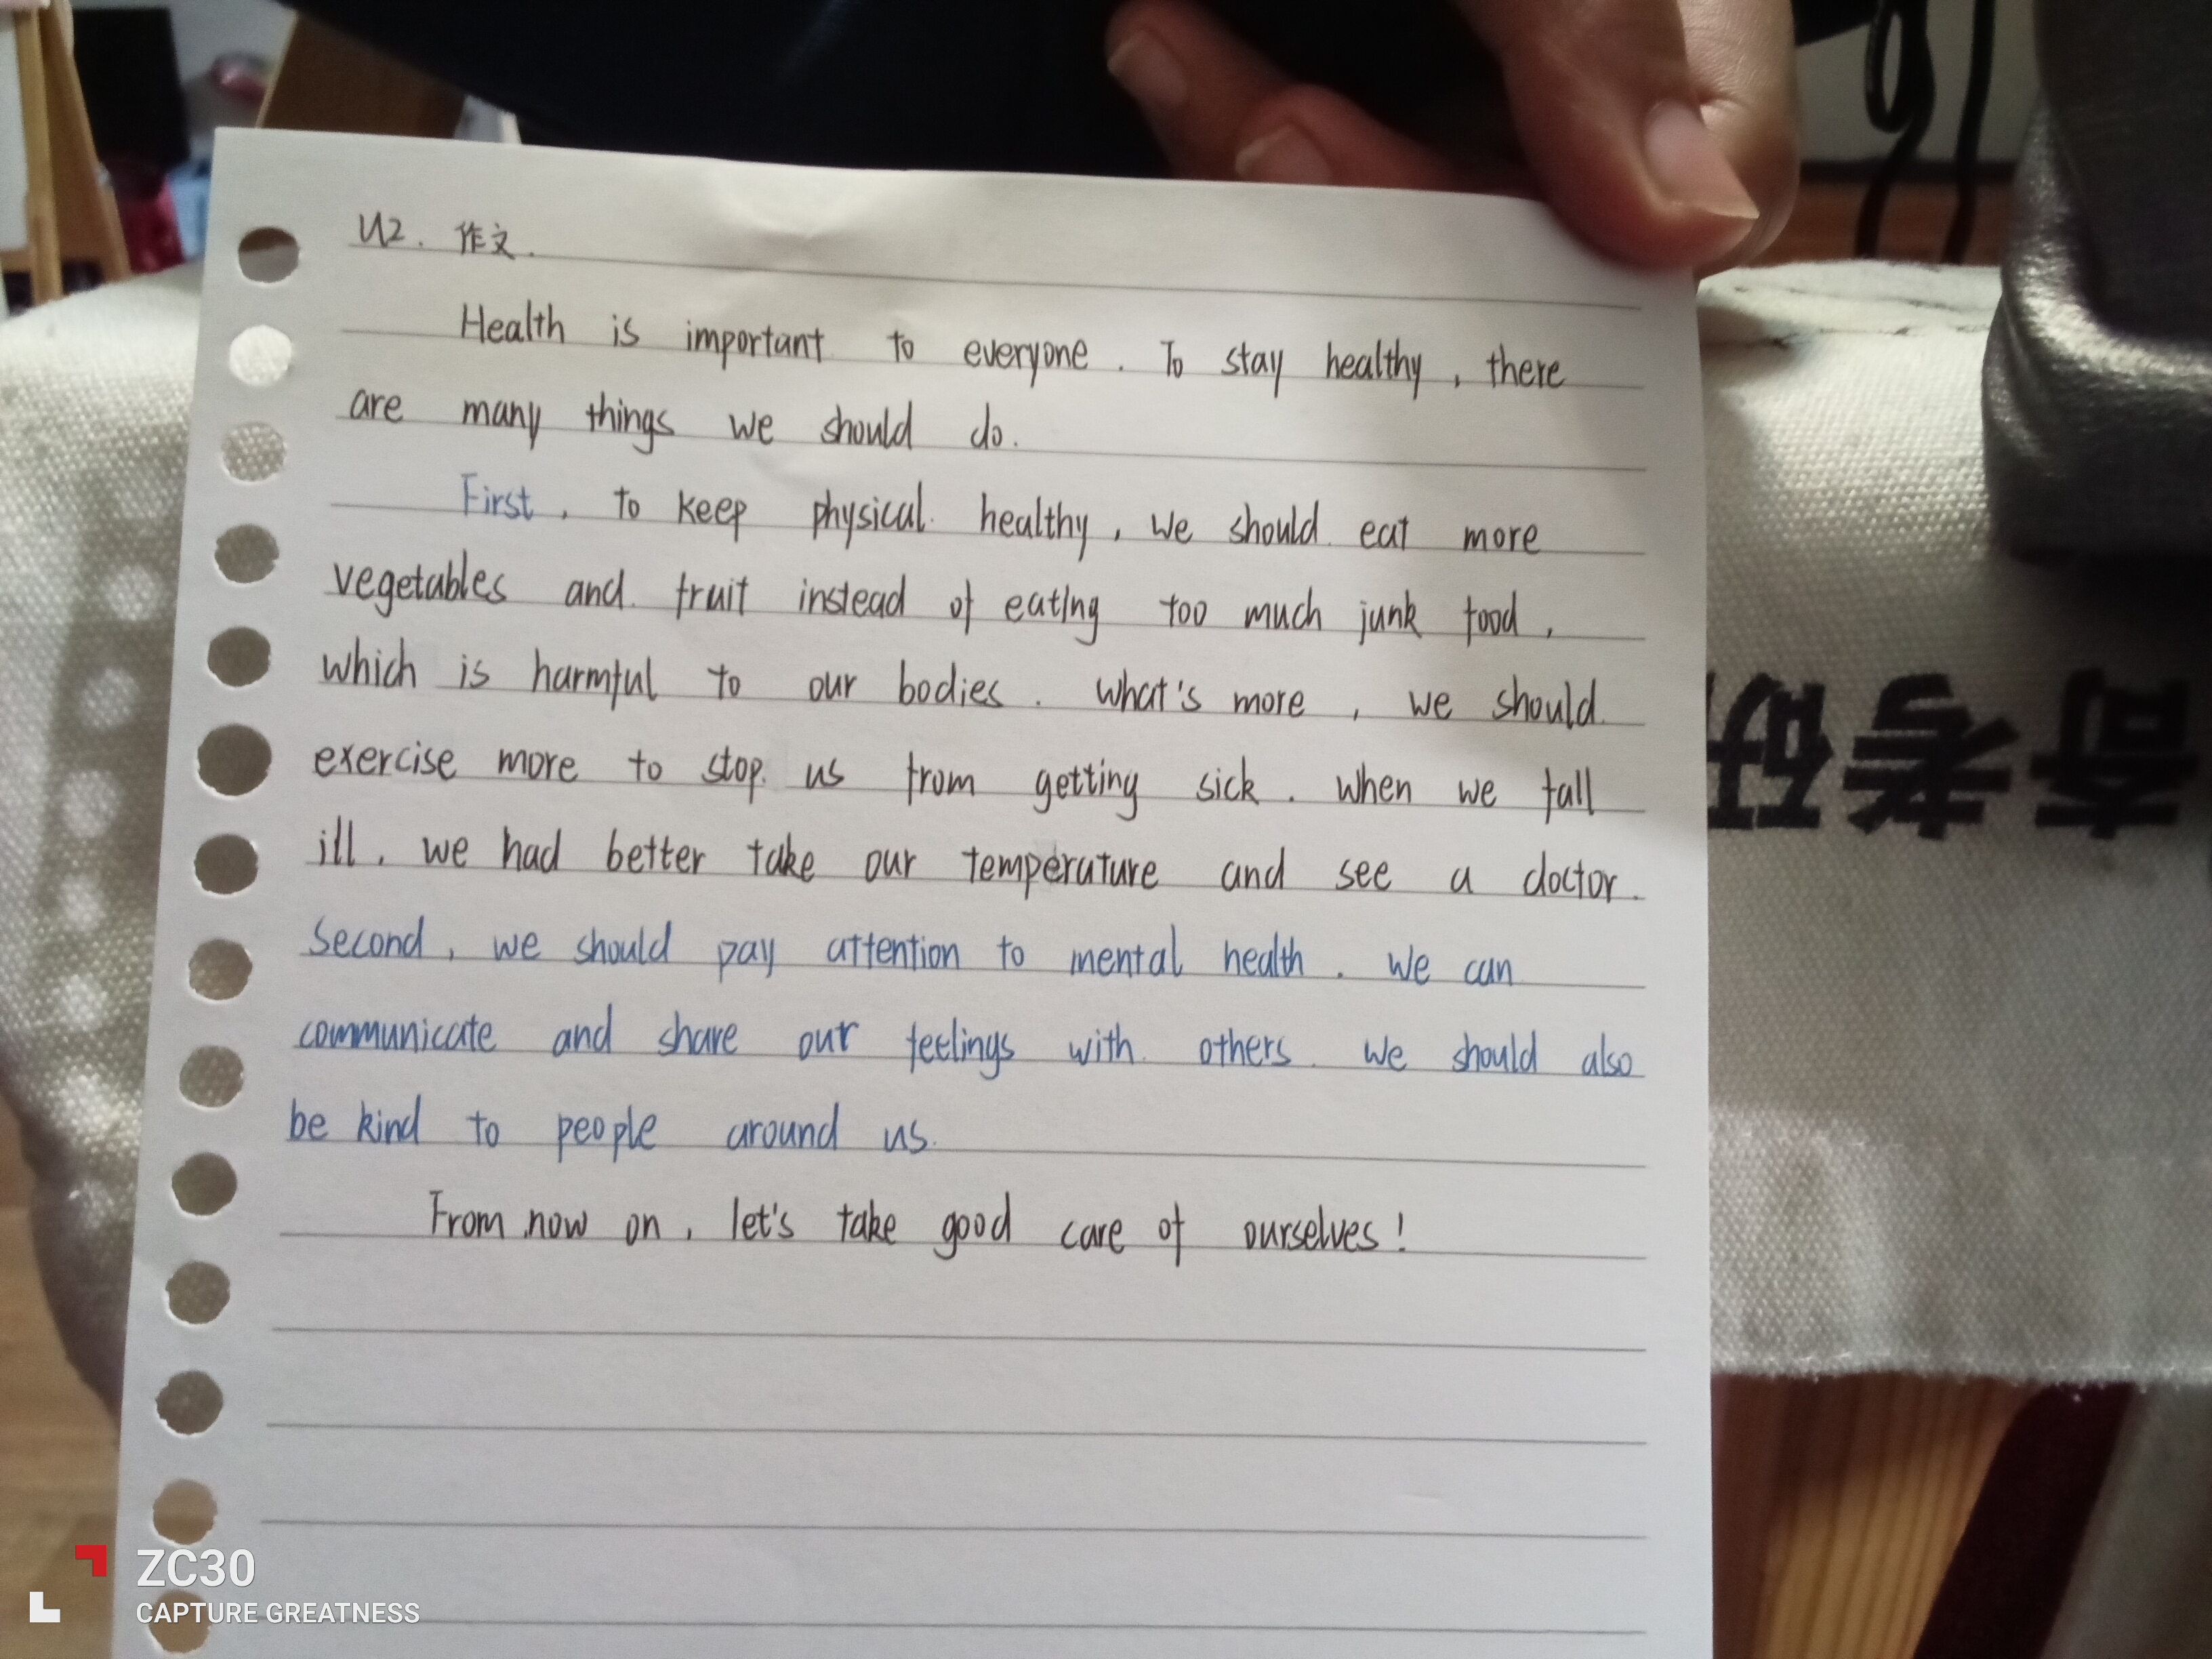 U2. 作文.
Health is important to everyone. To stay healthy, there
are many things we should do.
First, to keep physical healthy, we should eat more
vegetables and fruit instead of eating too much junk food,
which is harmful to our bodies. What's more, we should
exercise more to stop us from getting sick. When we fall
ill, we had better take our temperature and see a doctor.
Second, we should pay attention to mental health. We can
communicate and share our feelings with others. We should also
be kind to people around us.
From now on, let's take good care of ourselves!
奇考研
ZC30
CAPTURE GREATNESS